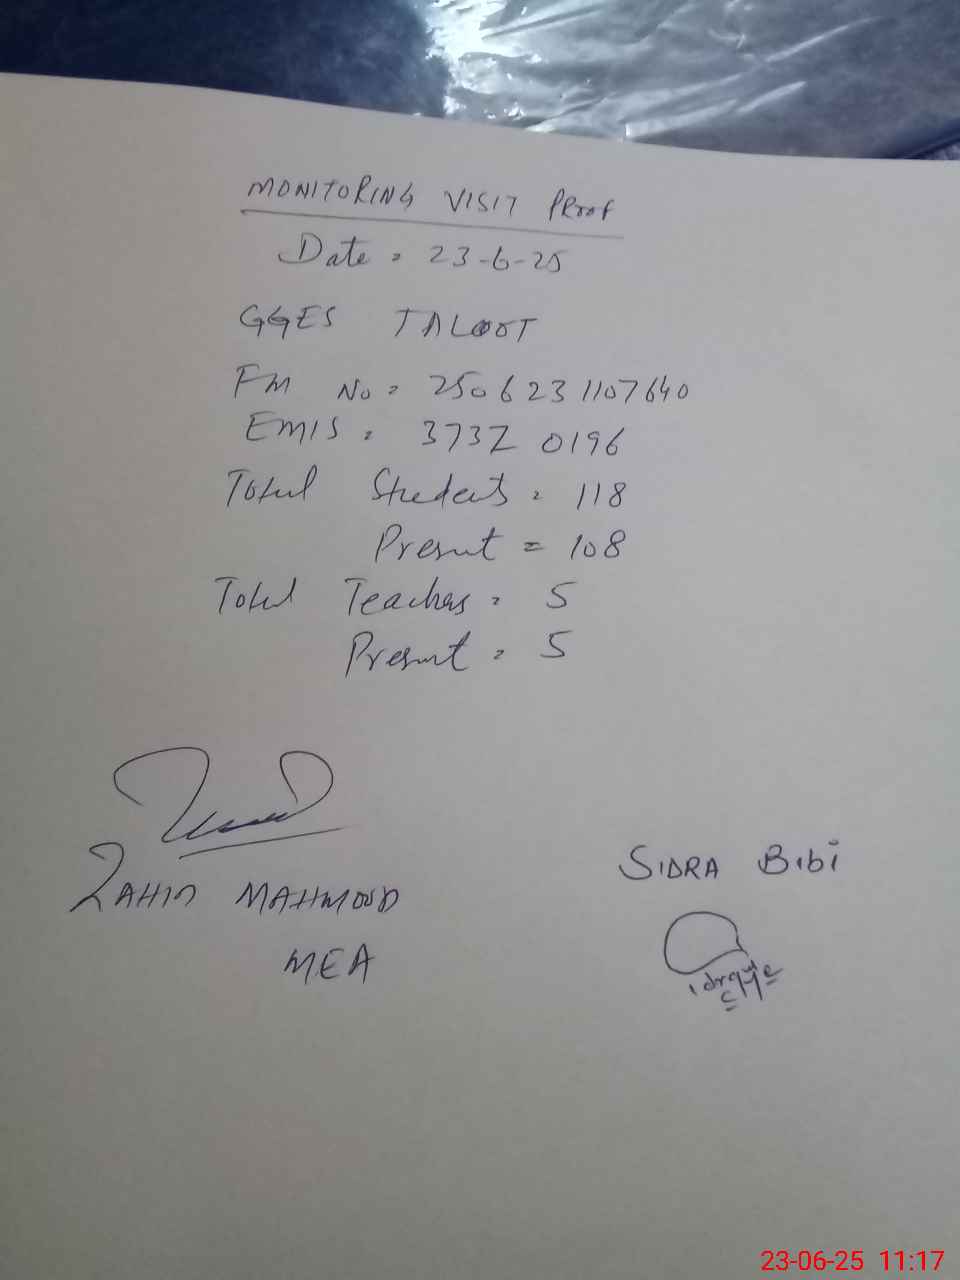 MONITORING VISIT PROOF
Date = 23-6-25
GGES TALOOT
FM No = 2506231107640
EMIS = 37320196
Total Students = 118
Present = 108
Total Teachers = 5
Present = 5
ZAHID MAHMOOD
MEA
SIDRA BIBI
23-06-25 11:17